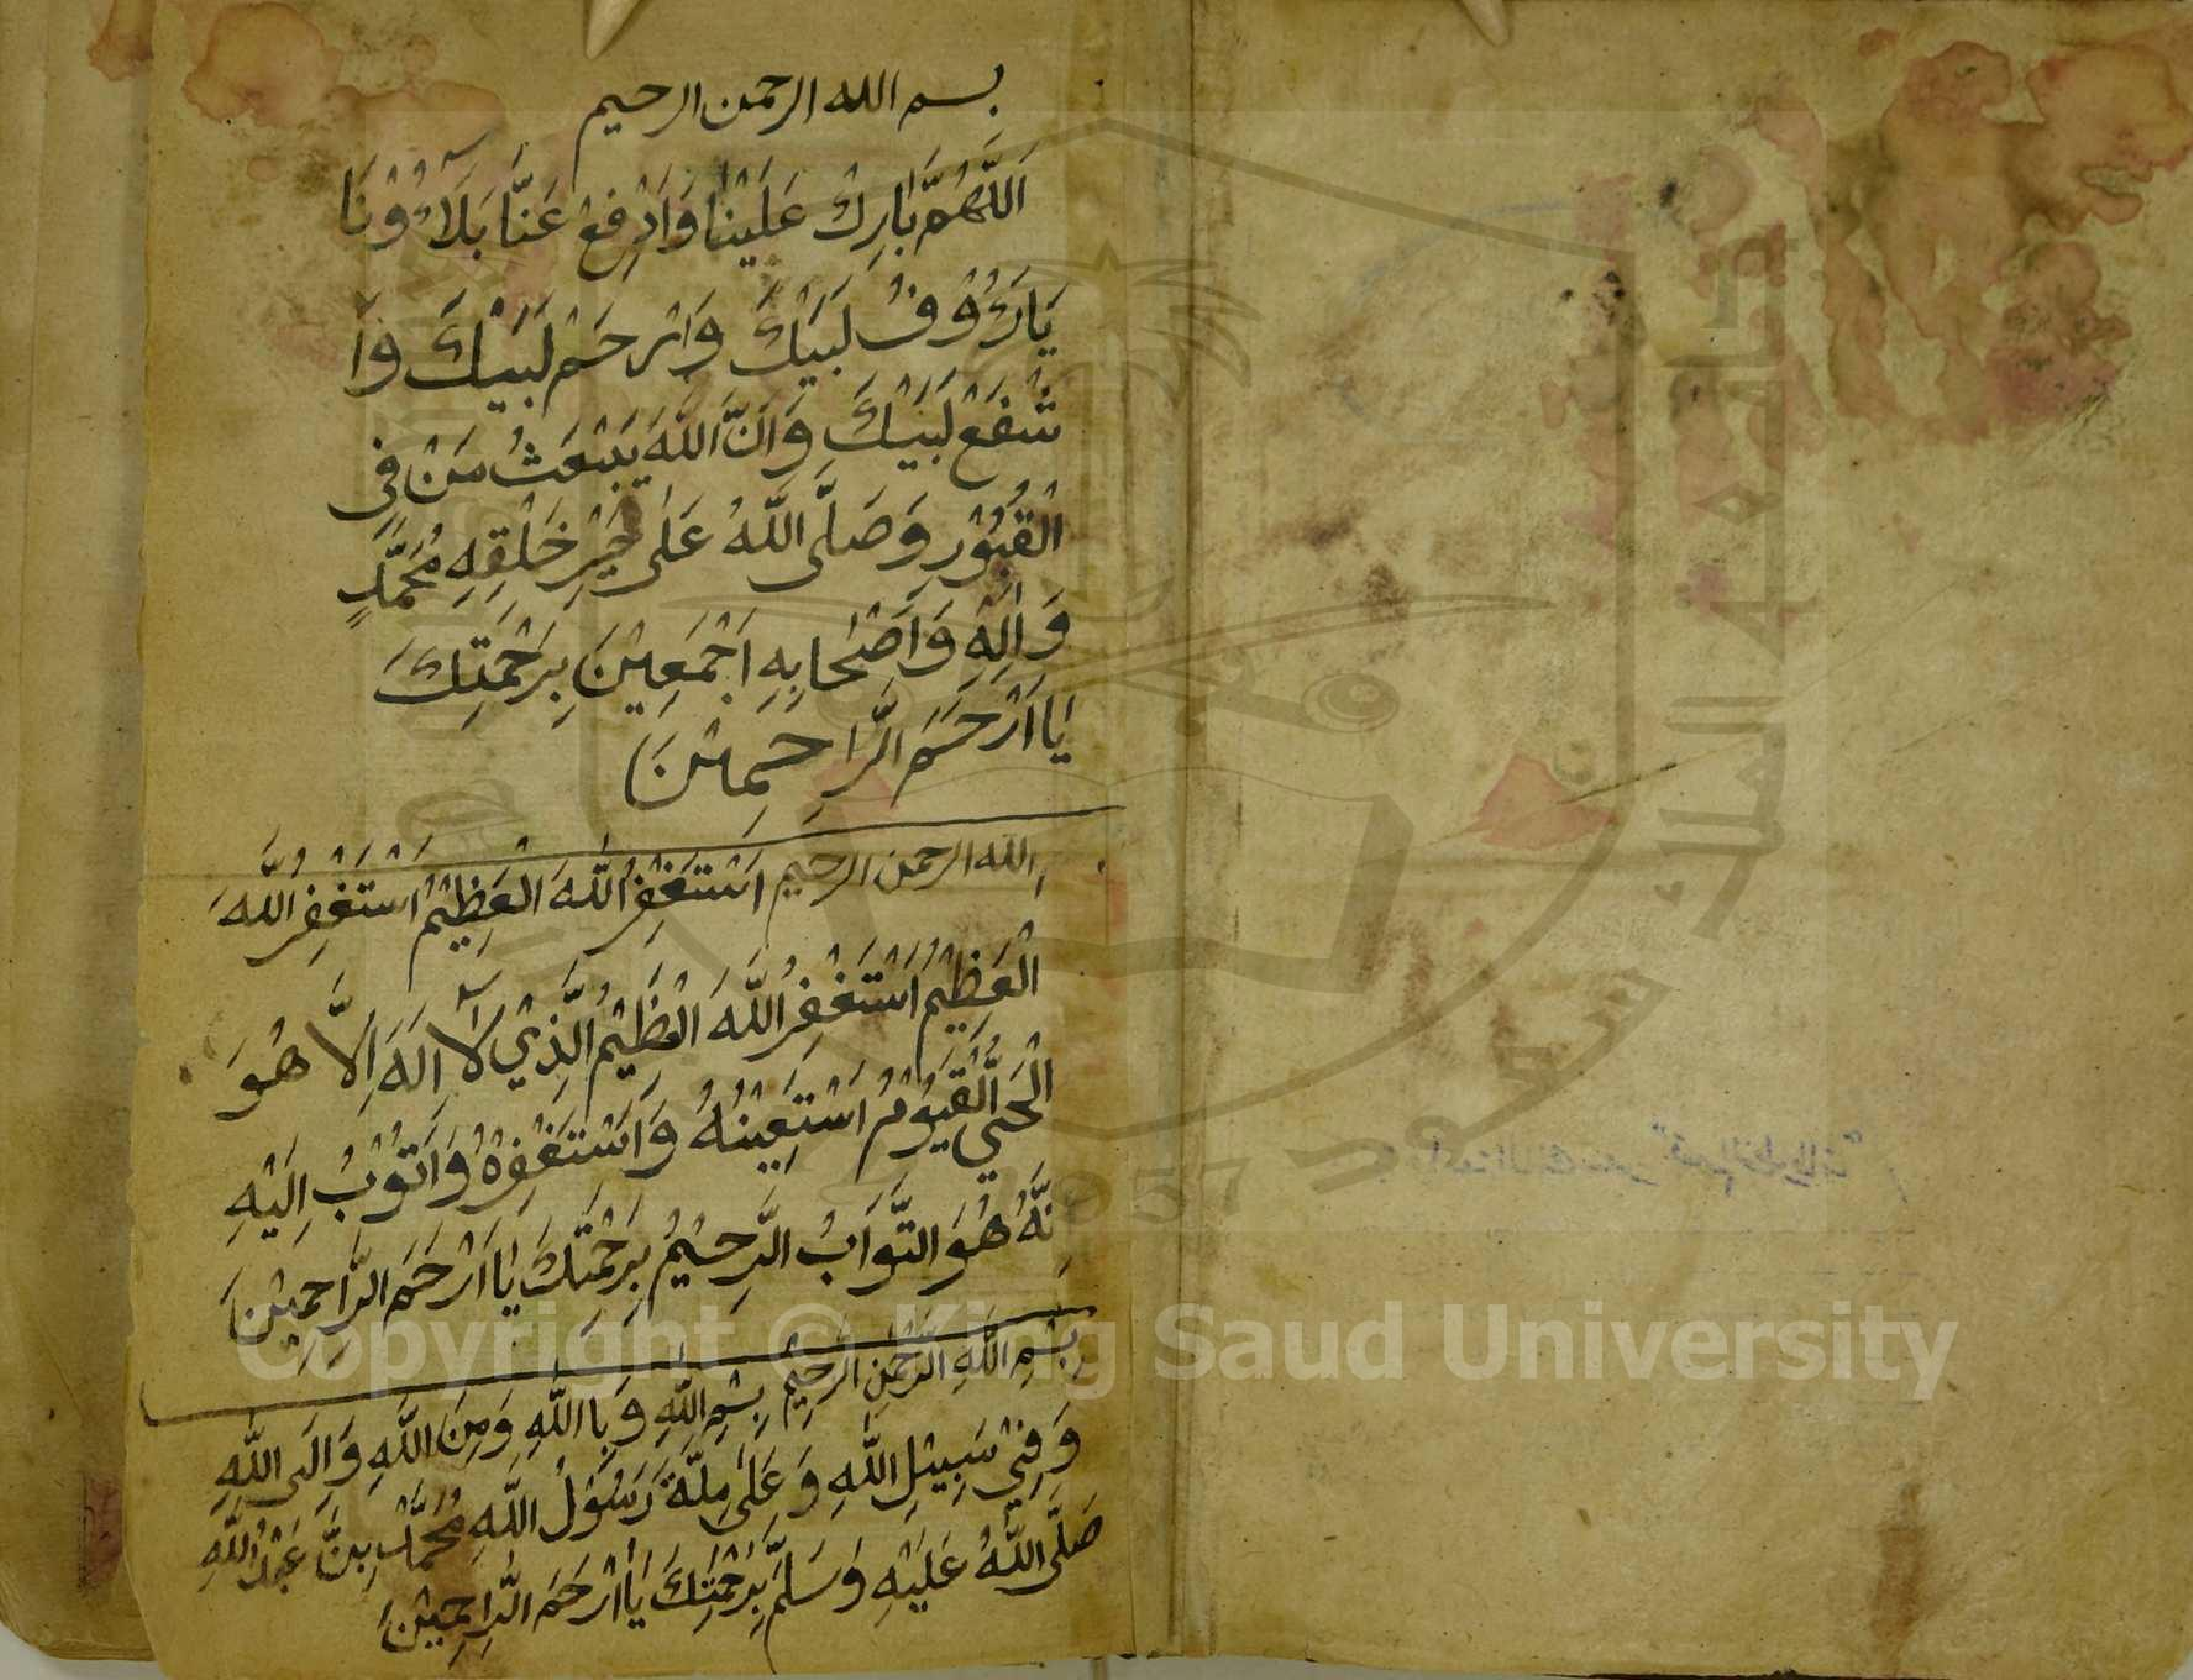 بسم الله الرحمن الرحيم
اَللّٰهُمَّ بَارِكْ عَلَيْنَا وَادْفِعْ عَنَّا بَلَآءُوْنَا
يَارَءُوْفُ لَبَيْكَ وَارْحَمْ لَبَيْكَ وَاَ
شْفَعْ لَبَيْكَ وَاَنَّ اللهَ يَبْعَثُ مَنْ فِى
الْقُبُوْرِ وَصَلَّى اللهُ عَلٰى خَيْرِ خَلْقِهِ مُحَمَّدٍ
وَاٰلِهِ وَاَصْحَابِهِ اَجْمَعِيْنَ بِرَحْمَتِكَ
يَا اَرْحَمَ الرَّاحِمِيْنَ
الله الرحمن الرحيم اَسْتَغْفِرُ اللهَ الْعَظِيْمَ اَسْتَغْفِرُ اللهَ
الْعَظِيْمَ اَسْتَغْفِرُ اللهَ الْعَظِيْمَ الَّذِيْ لَآ اِلَهَ اِلَّا هُوَ
الْحَيُّ الْقَيُّوْمُ اَسْتَعِيْنُهُ وَاَسْتَغْفِرُهُ وَاَتُوْبُ اِلَيْهِ
نَّهُ هُوَ التَّوَابُ الرَّحِيْمُ بِرَحْمَتِكَ يَا اَرْحَمَ الرَّاحِمِيْنَ
بِسْمِ اللهِ الرَّحْمٰنِ الرَّحِيْمِ بِسْمِ اللهِ وَبِا اللهِ وَمِنَ اللهِ وَاِلَى اللهِ
وَفِيْ سَبِيْلِ اللهِ وَعَلٰى مِلَّةِ رَسُوْلُ اللهِ مُحَمَّدْ بِنْ عَبْدُ اللهِ
صَلَّى اللهُ عَلَيْهِ وَسَلَّمَ بِرَحْمَتِكَ يَا اَرْحَمَ الرَّاحِمِيْنَ
جامعة الملك سعود
1957
Copyright © King Saud University